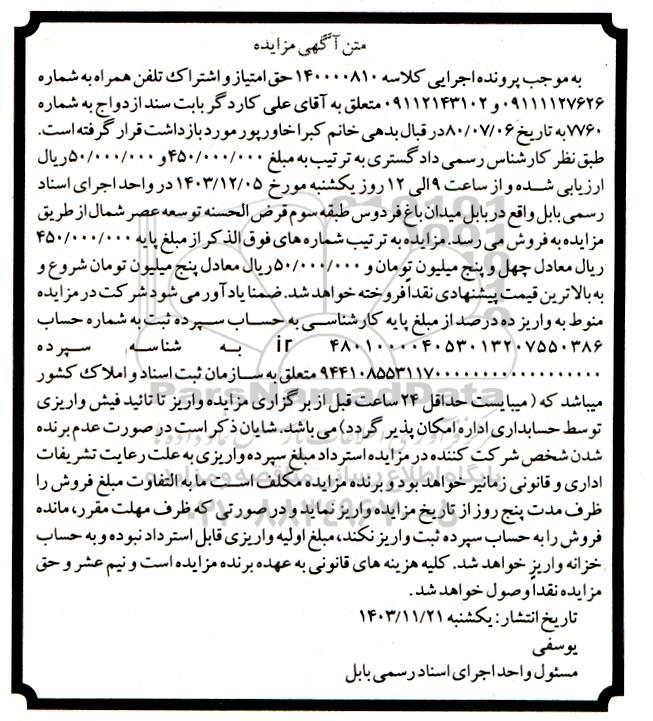 متن آگهی مزایده
به موجب پرونده اجرایی کلاسه ۱۴۰۰۰۰۸۱۰ حق امتیاز و اشتراک تلفن همراه به شماره
۰۹۱۱۱۱۲۷۶۲۶ و ۰۹۱۱۲۱۴۳۱۰۲ متعلق به آقای علی کاردگر بابت سند ازدواج به شماره
۷۷۶۰ به تاریخ ۸۰/۰۷/۰۶ در قبال بدهی خانم کبرا خاورپور مورد بازداشت قرار گرفته است.
طبق نظر کارشناس رسمی دادگستری به ترتیب به مبلغ ۴۵۰/۰۰۰/۰۰۰ و ۵۰/۰۰۰/۰۰۰ ریال
ارزیابی شده و از ساعت ۹ الی ۱۲ روز یکشنبه مورخ ۱۴۰۳/۱۲/۰۵ در واحد اجرای اسناد
رسمی بابل واقع در بابل میدان باغ فردوس طبقه سوم قرض الحسنه توسعه عصر شمال از طریق
مزایده به فروش می رسد. مزایده به ترتیب شماره های فوق الذکر از مبلغ پایه ۴۵۰/۰۰۰/۰۰۰
ریال معادل چهل و پنج میلیون تومان و ۵۰/۰۰۰/۰۰۰ ریال معادل پنج میلیون تومان شروع و
به بالاترین قیمت پیشنهادی نقدا فروخته خواهد شد. ضمنا یادآور می شود شرکت در مزایده
منوط به واریز ده درصد از مبلغ پایه کارشناسی به حساب سپرده ثبت به شماره حساب
ir ۴۸۰۱۰۰۰۰۴۰۵۳۰۱۳۲۰۷۵۵۰۳۸۶ به شناسه سپرده
۹۴۴۱۰۸۵۵۳۱۱۷۰۰۰۰۰۰۰۰۰۰۰۰۰۰۰۰۰۰ متعلق به سازمان ثبت اسناد و املاک کشور
میباشد که ( میبایست حداقل ۲۴ ساعت قبل از برگزاری مزایده واریز تا تائید فیش واریزی
توسط حسابداری اداره امکان پذیر گردد) می باشد. شایان ذکر است در صورت عدم برنده
شدن شخص شرکت کننده در مزایده استرداد مبلغ سپرده واریزی به علت رعایت تشریفات
اداری و قانونی زمانبر خواهد بود و برنده مزایده مکلف است ما به التفاوت مبلغ فروش را
ظرف مدت پنج روز از تاریخ مزایده واریز نماید و در صورتی که ظرف مهلت مقرر، مانده
فروش را به حساب سپرده ثبت واریز نکند، مبلغ اولیه واریزی قابل استرداد نبوده و به حساب
خزانه واریز خواهد شد. کلیه هزینه های قانونی به عهده برنده مزایده است و نیم عشر و حق
مزایده نقداً وصول خواهد شد.
تاریخ انتشار: یکشنبه ۱۴۰۳/۱۱/۲۱
یوسفی
مسئول واحد اجرای اسناد رسمی بابل